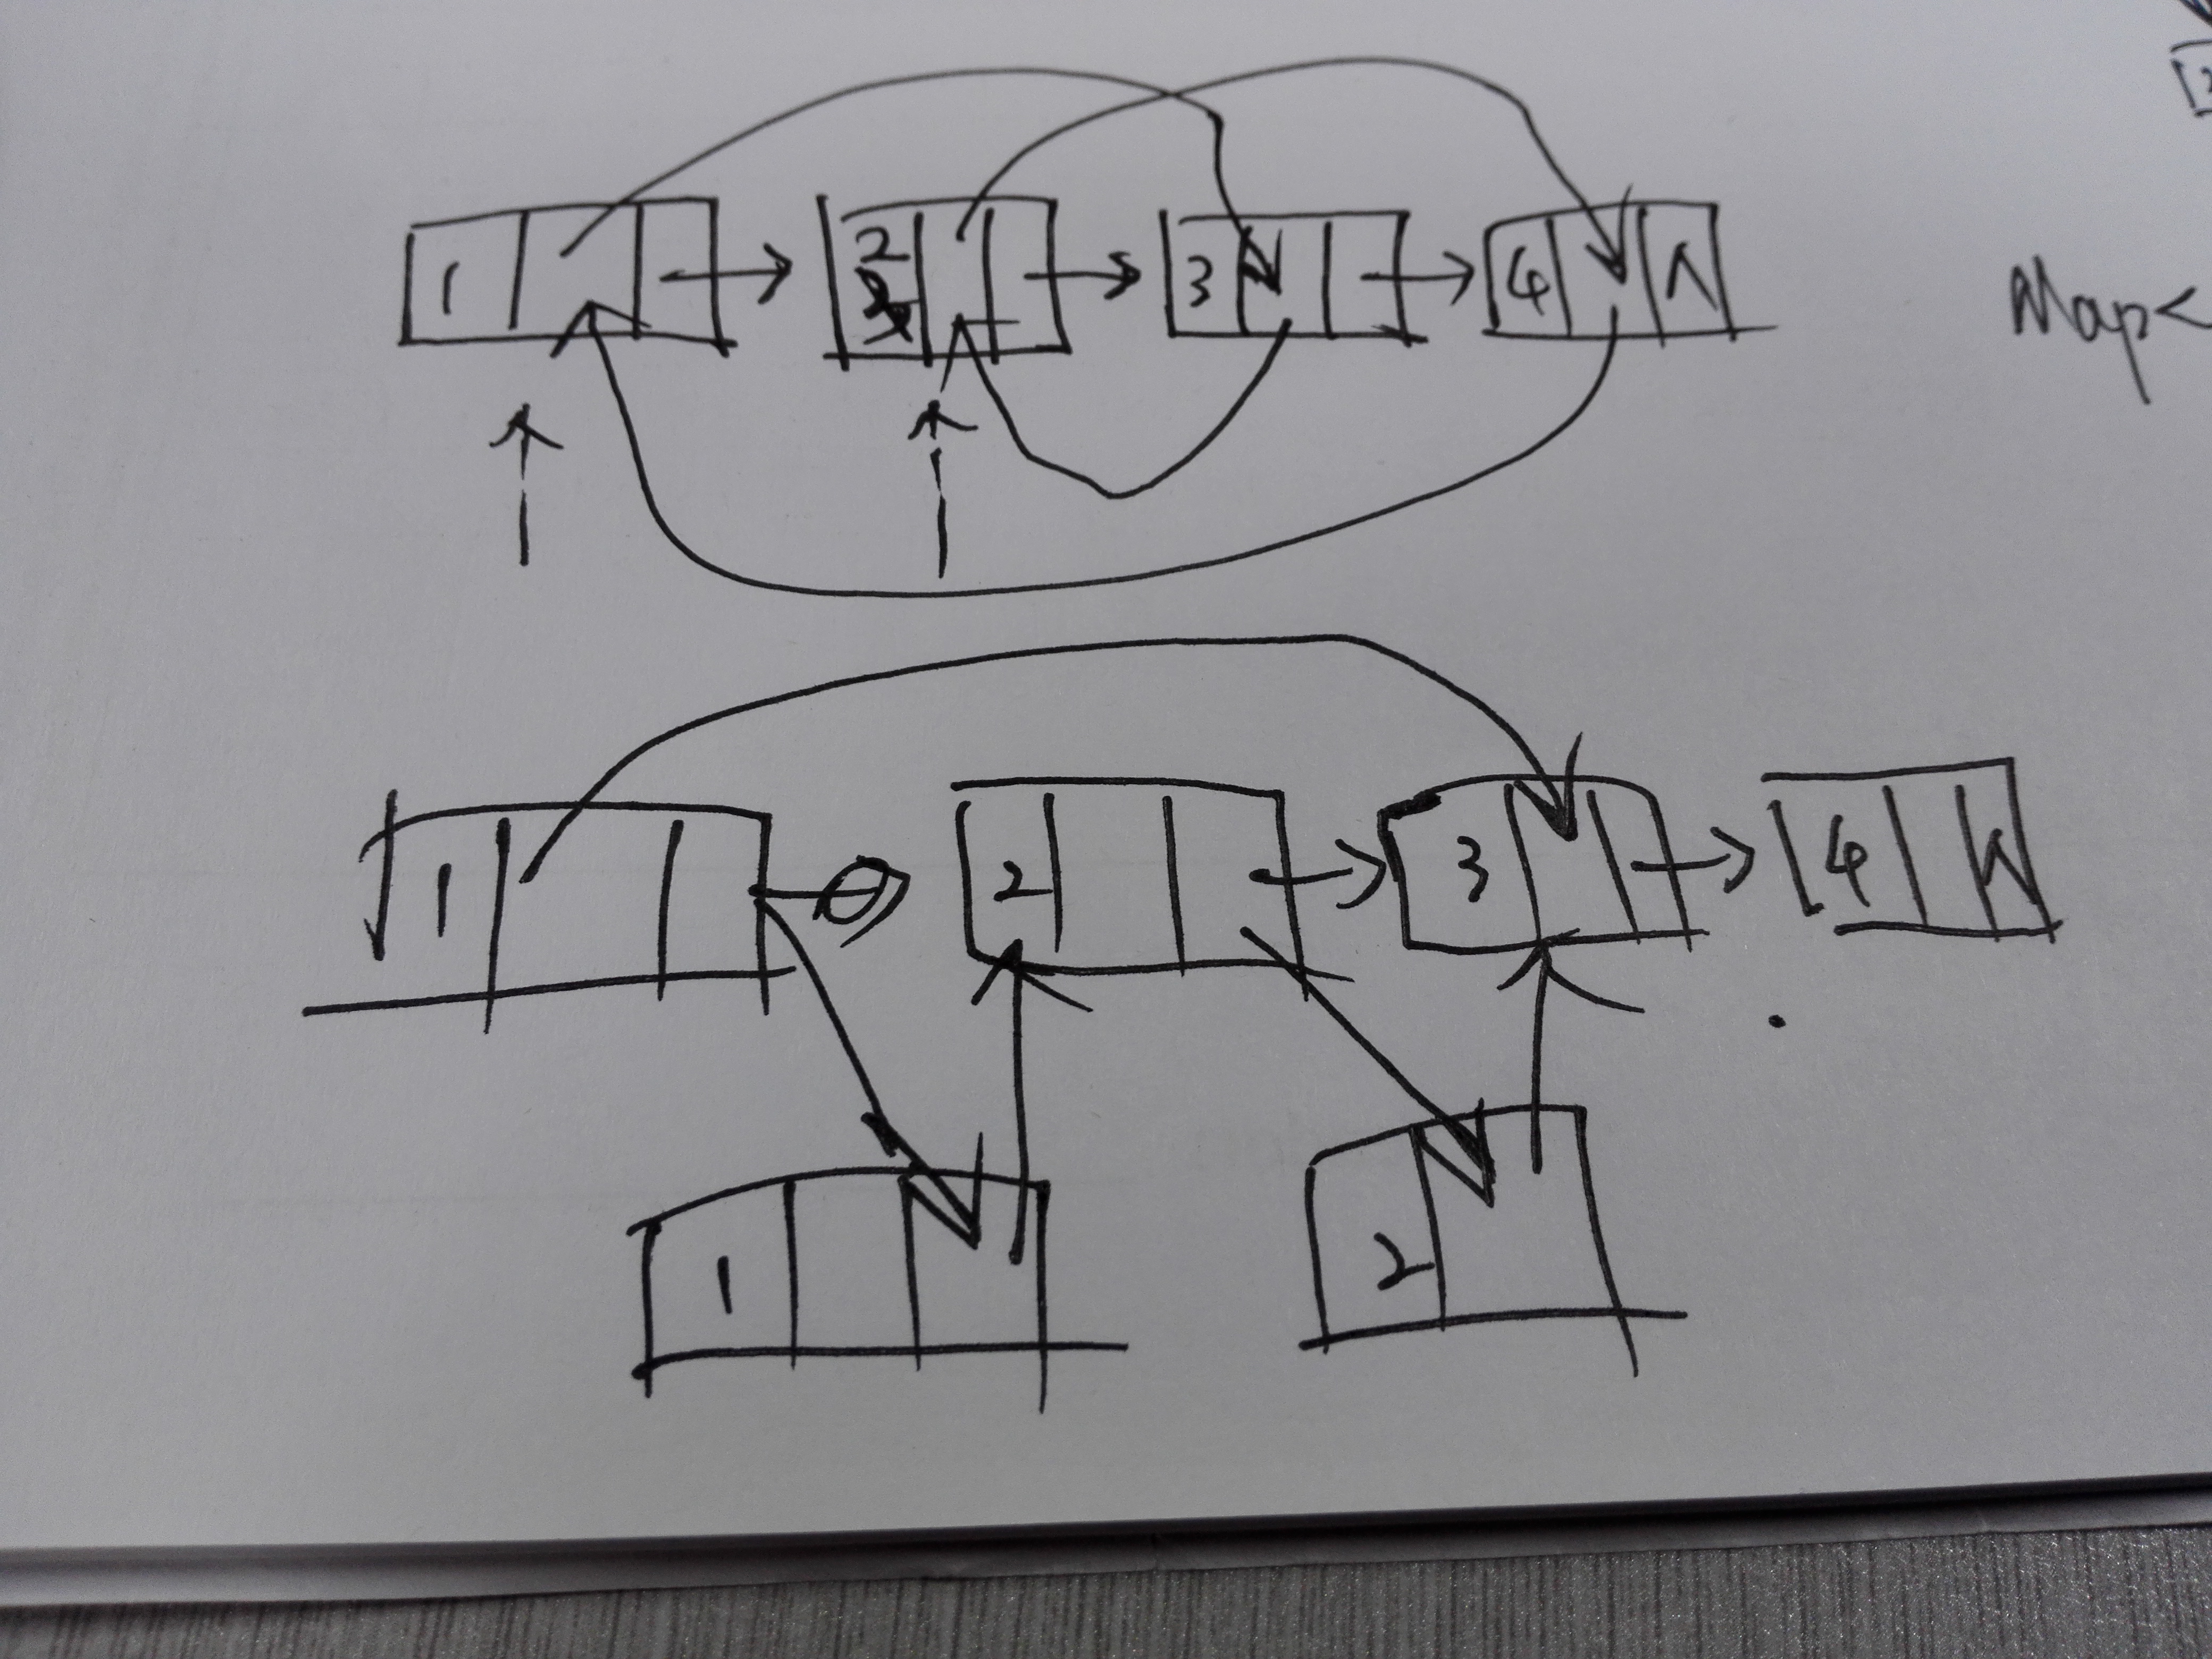 1 2 3 4 Λ
Map<
1 2 3 4 Λ
1 2